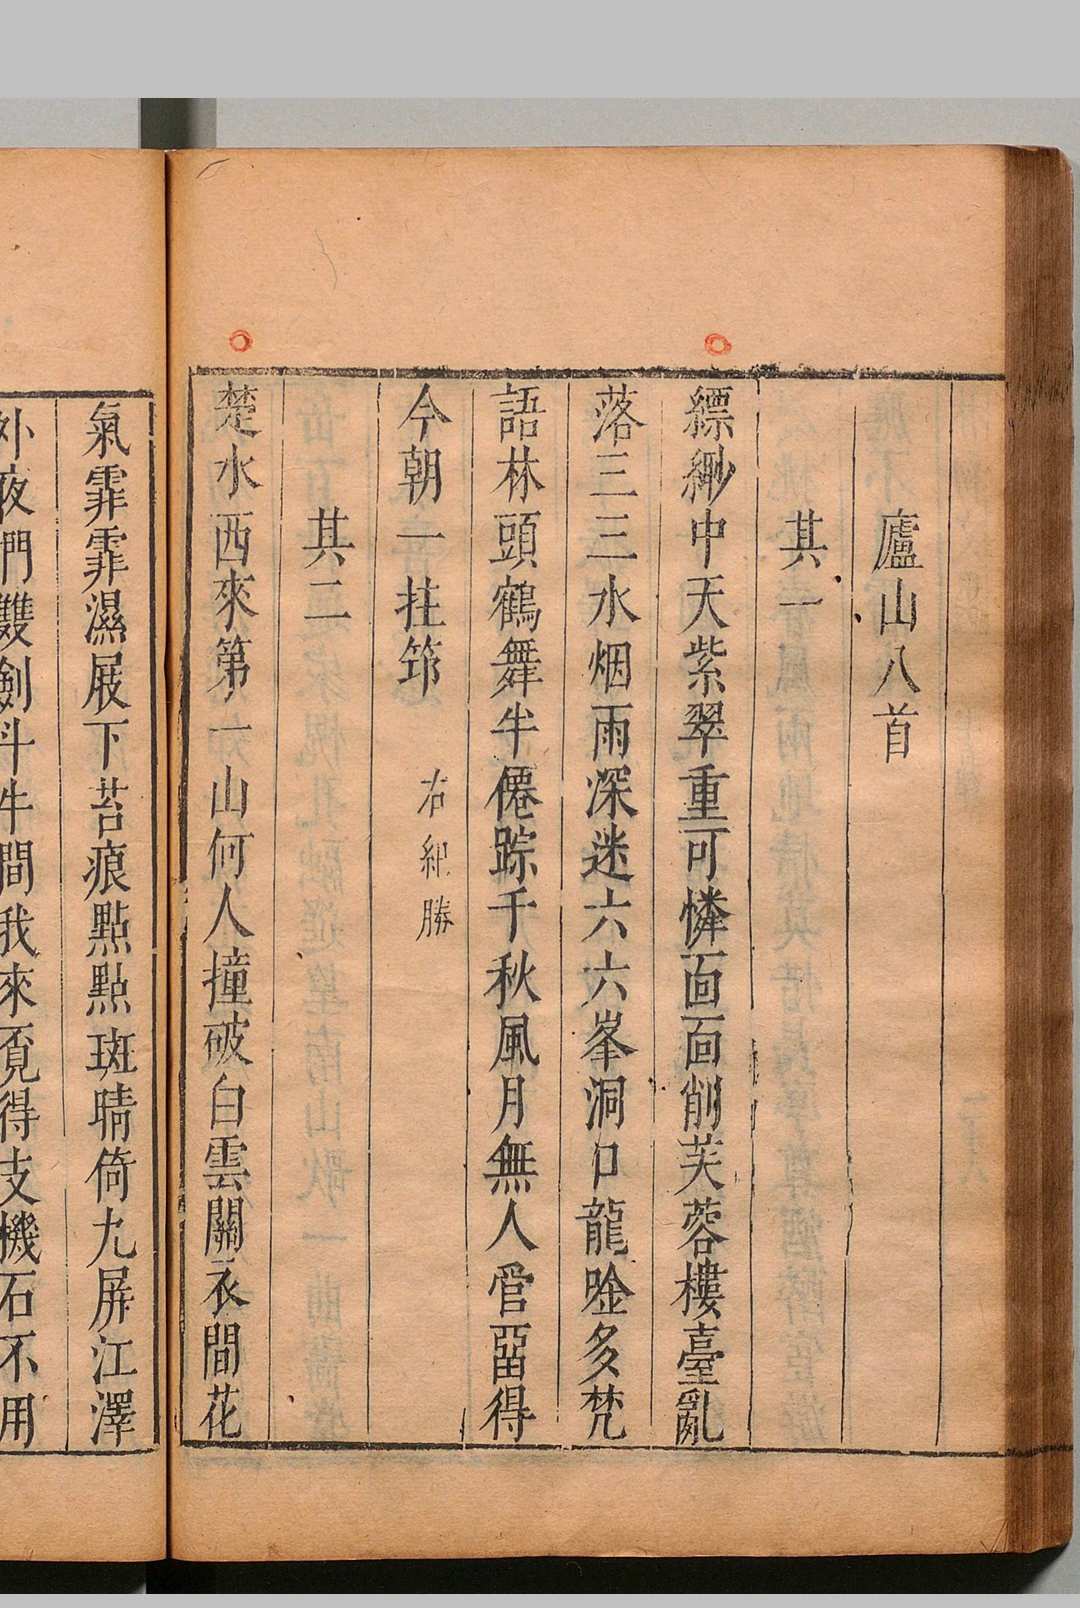 廬山八首
其一
縹緲中天紫翠重可憐面面削芙蓉樓臺亂
落三三水烟雨深迷六六峯洞口龍唫多梵
語林頭鶴舞半僊踪千秋風月無人管留得
今朝一拄笻 右紀勝
其二
楚水西來第一山何人撞破白雲關衣間花
氣霏霏濕屐下苔痕點點斑晴倚九屏江澤
外夜門雙劍斗牛間我來覓得支機石不用